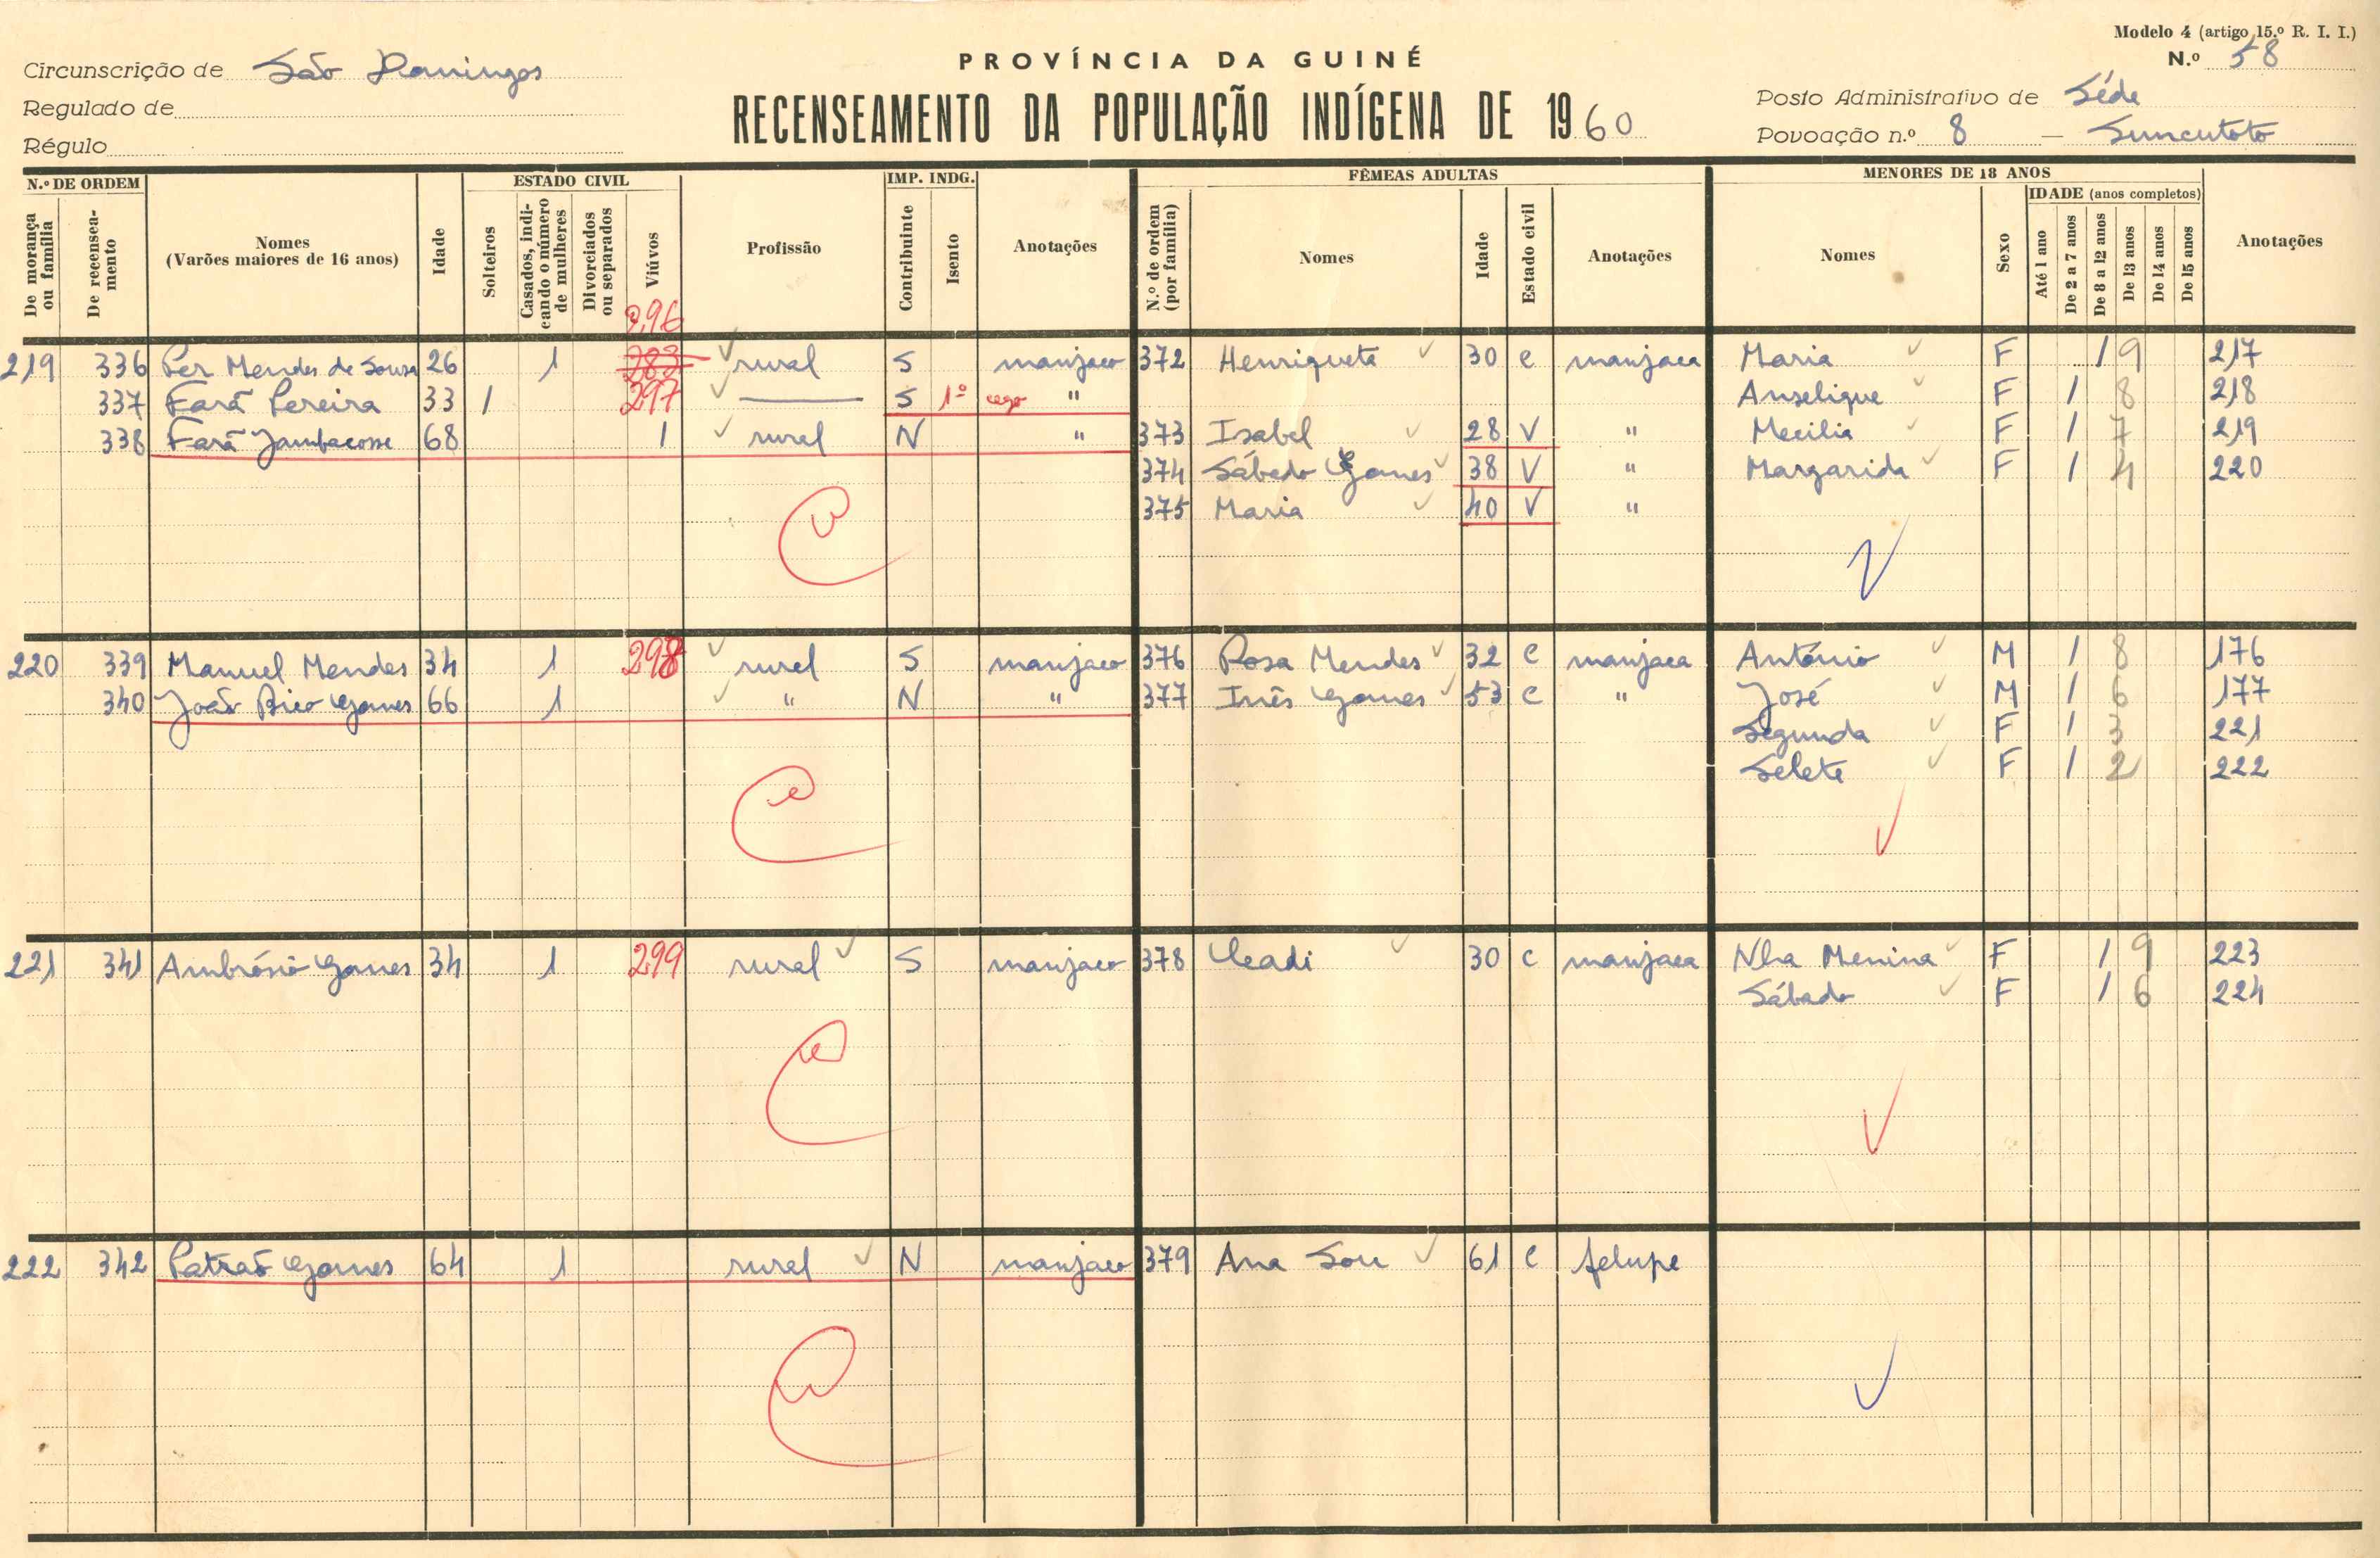 Modelo 4 (artigo 15.º R. I. I.)
N.º 58
PROVÍNCIA DA GUINÉ
RECENSEAMENTO DA POPULAÇÃO INDÍGENA DE 1960
Circunscrição de São Domingos
Regulado de
Régulo
Posto Administrativo de Séde
Povoação n.º 8 — Suncutoto
N.º DE ORDEM
De morança ou família
De recenseamento
Nomes (Varões maiores de 16 anos)
Idade
ESTADO CIVIL
Solteiros
Casados, indicando o número de mulheres
Divorciados ou separados
Viúvos
Profissão
IMP. INDG.
Contribuinte
Isento
Anotações
FÊMEAS ADULTAS
N.º de ordem (por família)
Nomes
Idade
Estado civil
Anotações
MENORES DE 18 ANOS
Nomes
Sexo
IDADE (anos completos)
Até 1 ano
De 2 a 7 anos
De 8 a 12 anos
De 13 anos
De 14 anos
De 15 anos
Anotações
296
219 336 Per Mendes de Sousa 26 1 283 rural S manjaco 372 Henriqueta 30 C manjaca Maria F 1 9 217
337 Fará Pereira 33 1 297 S 1º cego " Anselique F 1 8 218
338 Fará Jambacosse 68 1 rural N " 373 Isabel 28 V " Mecilia F 1 7 219
374 Sábado Gomes 38 V " Margarida F 1 4 220
375 Maria 40 V "
220 339 Manuel Mendes 34 1 298 rural S manjaco 376 Rosa Mendes 32 C manjaca António M 1 8 176
340 João Bico Gomes 66 1 " N " 377 Inês Gomes 53 C " José M 1 6 177
Segunda F 1 3 221
Selete F 1 2 222
221 341 Ambrósio Gomes 34 1 299 rural S manjaco 378 Cadi 30 C manjaca Nha Menina F 1 9 223
Sábado F 1 6 224
222 342 Patrão Gomes 64 1 rural N manjaco 379 Ana Sou 61 C felupe